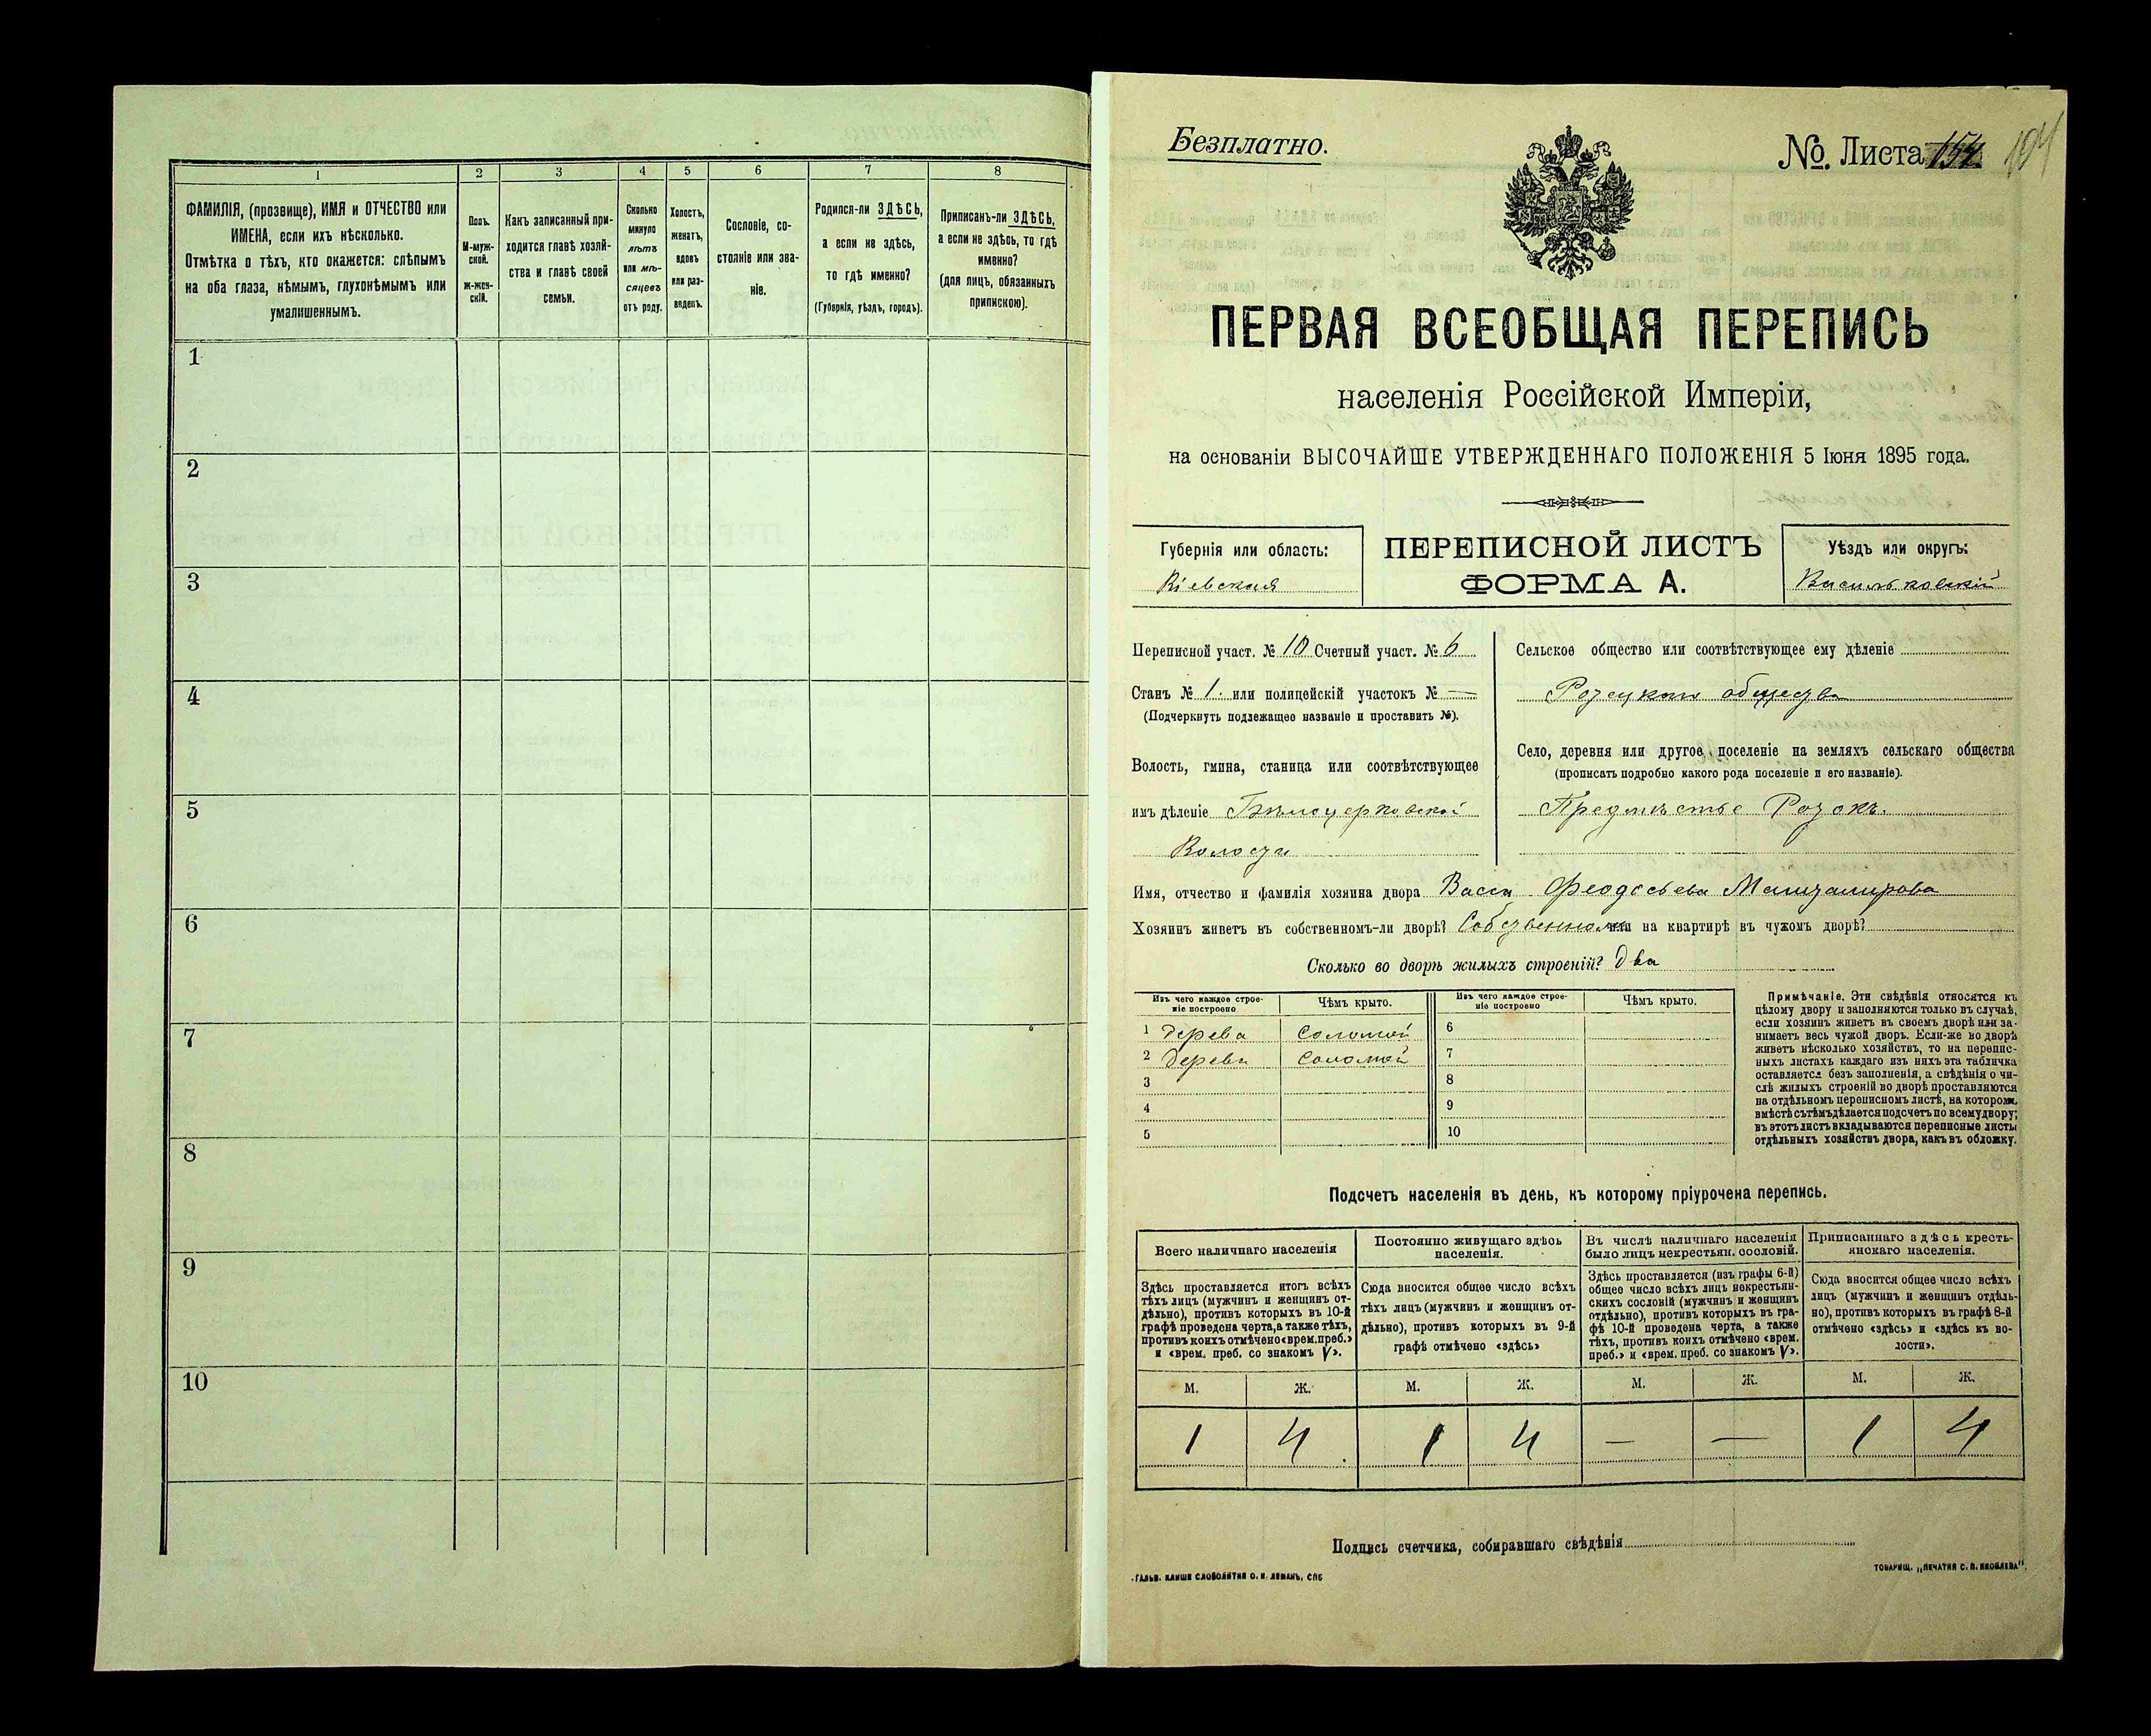 1
2
3
4
5
6
7
8
ФАМИЛІЯ, (прозвище), ИМЯ и ОТЧЕСТВО или
ИМЕНА, если ихъ нѣсколько.
Отмѣтка о тѣхъ, кто окажется: слѣпымъ
на оба глаза, нѣмымъ, глухонѣмымъ или
умалишеннымъ.
Полъ.
М-муж-
ской.
Ж-жен-
скій.
Какъ записанный при-
ходится главѣ хозяй-
ства и главѣ своей
семьи.
Сколько
минуло
лѣтъ
или мѣ-
сяцевъ
отъ роду.
Холостъ,
женатъ,
вдовъ
или раз-
веденъ.
Сословіе, со-
стояніе или зва-
ніе.
Родился-ли ЗДѢСЬ,
а если не здѣсь,
то гдѣ именно?
(Губернія, уѣздъ, городъ).
Приписанъ-ли ЗДѢСЬ,
а если не здѣсь, то гдѣ
именно?
(для лицъ, обязанныхъ
припискою).
1
2
3
4
5
6
7
8
9
10
Безплатно.
№. Листа 154. 194
ПЕРВАЯ ВСЕОБЩАЯ ПЕРЕПИСЬ
населенія Россійской Имперіи,
на основаніи ВЫСОЧАЙШЕ УТВЕРЖДЕННАГО ПОЛОЖЕНІЯ 5 Іюня 1895 года.
Губернія или область:
Кіевская
ПЕРЕПИСНОЙ ЛИСТЪ
ФОРМА А.
Уѣздъ или округъ:
Васильковскій
Переписной участ. № 10 Счетный участ. № 6
Станъ № 1. или полицейскій участокъ № —
(Подчеркнуть подлежащее названіе и проставить №).
Волость, гмина, станица или соотвѣтствующее
имъ дѣленіе Бѣлоцерковской
Волости
Сельское общество или соотвѣтствующее ему дѣленіе
общества
Село, деревня или другое поселеніе на земляхъ сельскаго общества
(прописать подробно какого рода поселеніе и его названіе).
Предмѣстье Розокъ.
Имя, отчество и фамилія хозяина двора Васса Феодосьева
Хозяинъ живетъ въ собственномъ-ли дворѣ? Собственномъ или на квартирѣ въ чужомъ дворѣ?
Сколько во дворѣ жилыхъ строеній? Два
Изъ чего каждое строе-
ніе построено
Чѣмъ крыто.
Изъ чего каждое строе-
ніе построено
Чѣмъ крыто.
1 Дерева Соломой 6
2 Дерева Соломой 7
3 8
4 9
5 10
Примѣчаніе. Эти свѣдѣнія относятся къ
цѣлому двору и заполняются только въ случаѣ,
если хозяинъ живетъ въ своемъ дворѣ или за-
нимаетъ весь чужой дворъ. Если-же во дворѣ
живетъ нѣсколько хозяйствъ, то на перепис-
ныхъ листахъ каждаго изъ нихъ эта табличка
оставляется безъ заполненія, а свѣдѣнія о чи-
слѣ жилыхъ строеній во дворѣ проставляются
на отдѣльномъ переписномъ листѣ, на которомъ
вмѣстѣ съ тѣмъ дѣлается подсчетъ по всему двору;
въ этотъ листъ вкладываются переписные листы
отдѣльныхъ хозяйствъ двора, какъ въ обложку.
Подсчетъ населенія въ день, къ которому пріурочена перепись.
Всего наличнаго населенія
Постоянно живущаго здѣсь
населенія.
Въ числѣ наличнаго населенія
было лицъ некрестьян. сословій.
Приписаннаго здѣсь кресть-
янскаго населенія.
Здѣсь проставляется итогъ всѣхъ
тѣхъ лицъ (мужчинъ и женщинъ от-
дѣльно), противъ которыхъ въ 10-й
графѣ проведена черта, а также тѣхъ,
противъ коихъ отмѣчено «врем. преб.»
и «врем. преб. со знакомъ V».
Сюда вносится общее число всѣхъ
тѣхъ лицъ (мужчинъ и женщинъ от-
дѣльно), противъ которыхъ въ 9-й
графѣ отмѣчено «здѣсь»
Здѣсь проставляется (изъ графы 6-й)
общее число всѣхъ лицъ некрестьян-
скихъ сословій (мужчинъ и женщинъ
отдѣльно), противъ которыхъ въ гра-
фѣ 10-й проведена черта, а также
тѣхъ, противъ коихъ отмѣчено «врем.
преб.» и «врем. преб. со знакомъ V».
Сюда вносится общее число всѣхъ
лицъ (мужчинъ и женщинъ отдѣль-
но), противъ которыхъ въ графѣ 8-й
отмѣчено «здѣсь» и «здѣсь къ во-
лости».
М. Ж. М. Ж. М. Ж. М. Ж.
1 4 1 4 — — 1 4
Подпись счетчика, собиравшаго свѣдѣнія
ГАЛЬВ. КЛИШЕ СЛОВОЛИТНИ О. И. ЛЕМАНЪ, СПБ
ТОВАРИЩ. „ПЕЧАТНЯ С. П. ЯКОВЛЕВА".